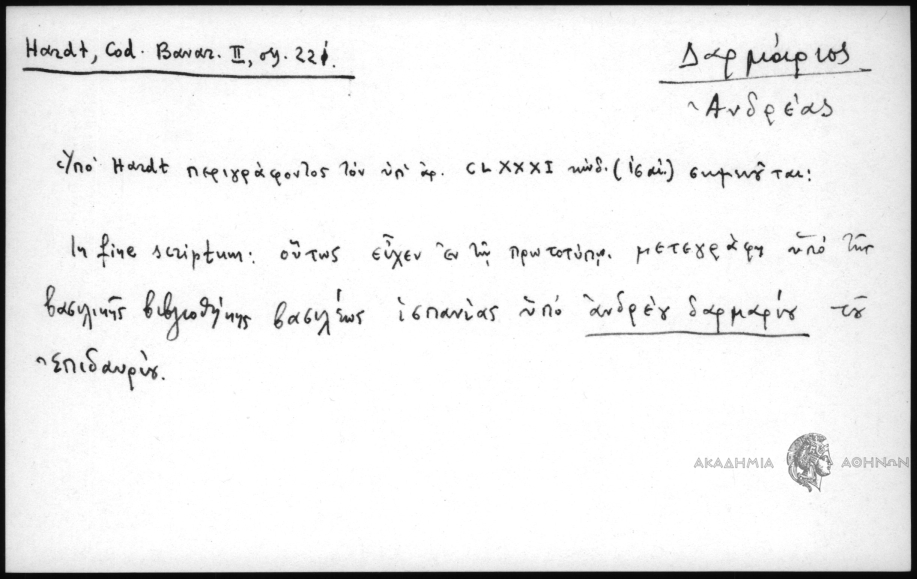 Hardt, Cod. Bavar. II, σγ. 221.
Δαρμάριος
Ἀνδρέας
Ὑπό Hardt περιγράφοντος τόν ὑπ' ἀρ. CLXXXI κώδ. (ἰσαι.) σημειοῦται:
In fine scriptum: οὕτως εὗχεν ἐν τῷ πρωτοτύπῳ. μετεγράφη ὑπό τῆς
βασιλικῆς βιβλιοθήκης βασιλέως ἱσπανίας ὑπό ἀνδρέου δαρμαρίου τοῦ
Ἐπιδαυρίου.
ΑΚΑΔΗΜΙΑ ΑΘΗΝΩΝ